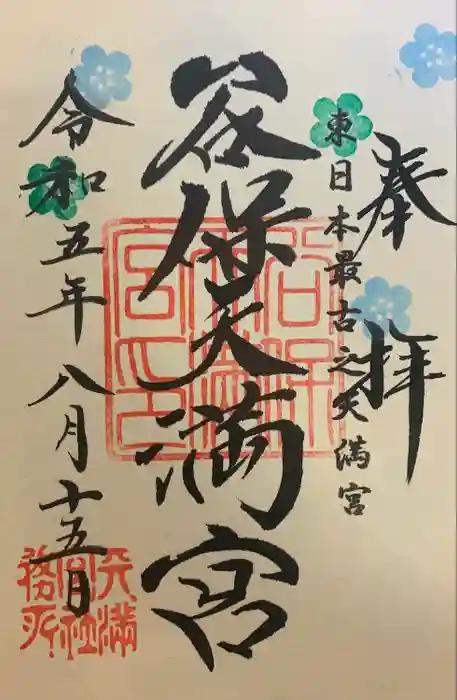 奉拝
東日本最古之天満宮
谷保天満宮
令和五年八月十五日
谷保天満宮印
天満宮社務所